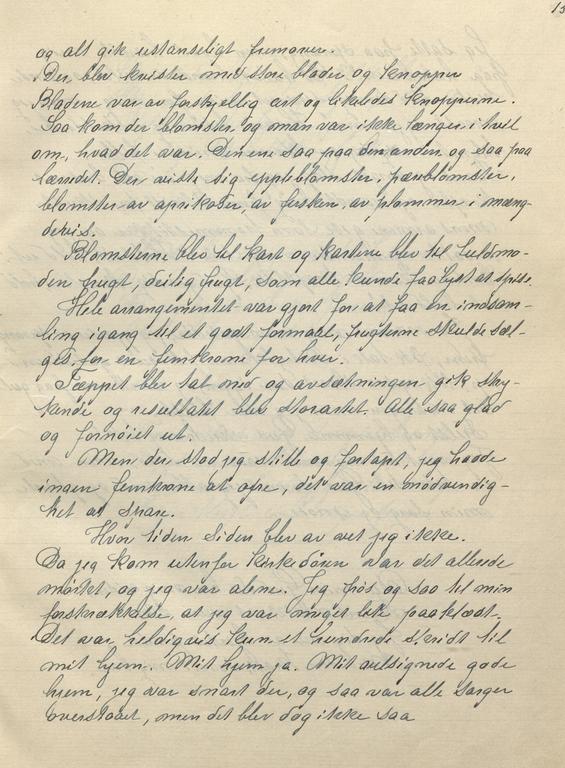 15
og alt gik ustanseligt fremover.
Der blev kvister med store blader og knopper
Bladene var av forskjellig art og likeledes knopperne.
Saa kom der blomster og man var ikke længer i tvil
om, hvad det var. Den ene saa paa den anden og saa paa
lærredet. Der viste sig epleblomster, pæreblomster,
blomster av aprikoser, av fersken, av plommer i mæng-
devis.
Blomsterne blev til kart og kartene blev til fuldmo-
den frugt, deilig frugt, som alle kunde faa lyst at spise.
Hele arrangementet var gjort for at faa en indsam-
ling igang til et godt formaal, frugterne skulde sæl-
ges for en femkrone for hver.
Tæppet blev tat ned og avsætningen gik stry-
kende og resultatet blev storartet. Alle saa glad
og fornöiet ut.
Men der stod jeg stille og fortapt, jeg hadde
ingen femkrone at ofre, det var en nödvendig-
het at spare.
Hvor tiden siden blev av vet jeg ikke.
Da jeg kom utenfor kirkedören var det allerede
mörket, og jeg var alene. Jeg frös og saa til min
forskrækkelse, at jeg var meget let paaklædt.
Det var heldigvis kun et hundrede skridt til
mit hjem. Mit hjem ja. Mit velsignede gode
hjem, jeg var snart der, og saa var alle sorger
overstaaet, men det blev dog ikke saa